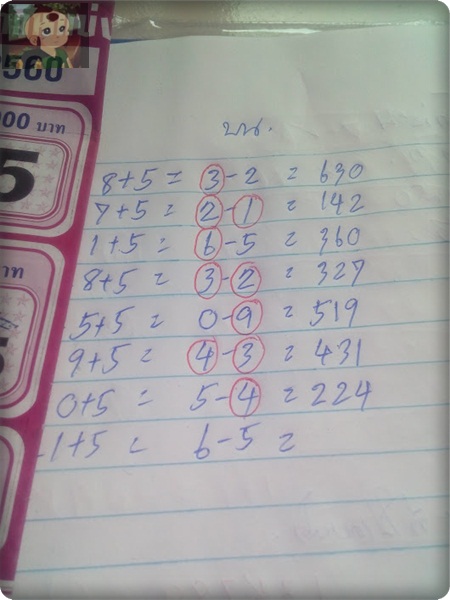 2560
000 บาท
5
บาท
บน.
8+5 = 3-2 = 630
7+5 = 2-1 = 142
1+5 = 6-5 = 360
8+5 = 3-2 = 327
5+5 = 0-9 = 519
9+5 = 4-3 = 431
0+5 = 5-4 = 224
1+5 = 6-5 =